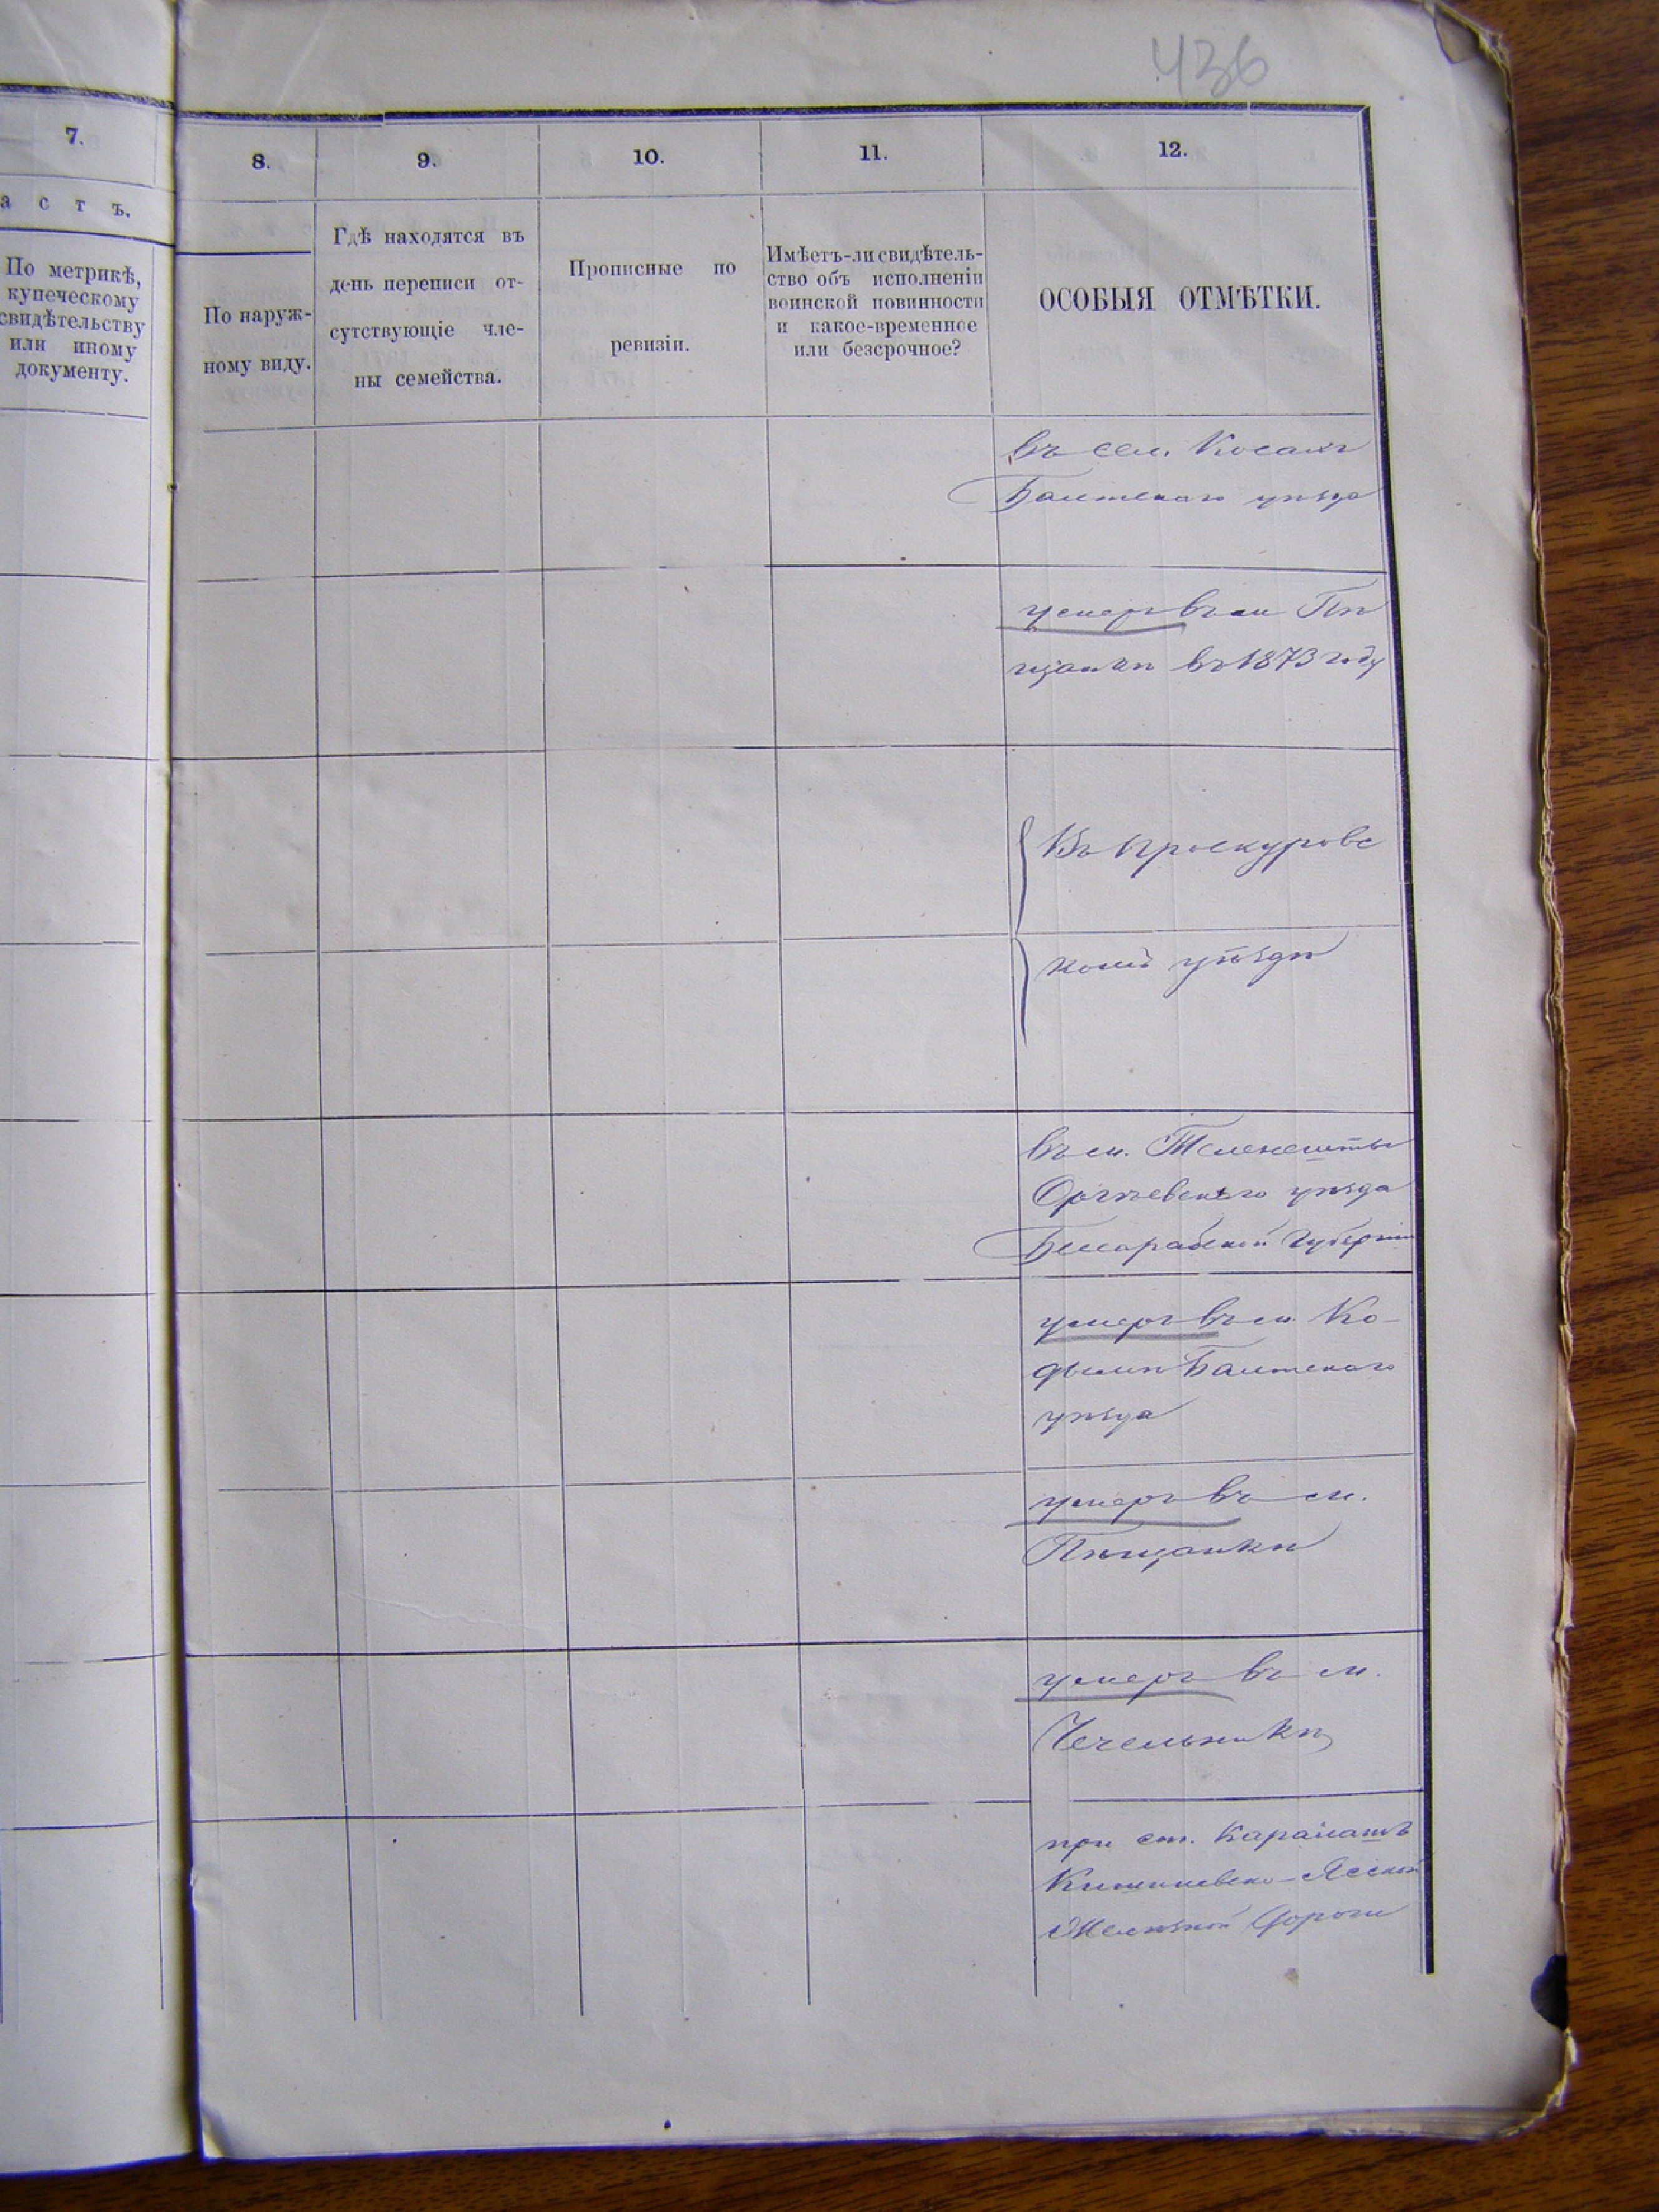 436
7.
8.
9.
10.
11.
12.
а с т ъ.
По метрикѣ,
купеческому
свидѣтельству
или иному
документу.
По наруж-
ному виду.
Гдѣ находятся въ
день переписи от-
сутствующіе чле-
ны семейства.
Прописные по
ревизіи.
Имѣетъ-ли свидѣтель-
ство объ исполненіи
воинской повинности
и какое-временное
или безсрочное?
ОСОБЫЯ ОТМѢТКИ.
въ сел. Косахъ
Балтскаго уѣзда
умеръ въ м Пѣ
щанкѣ въ 1873 году
Въ Проскуровс
комъ уѣздѣ
въ м. Теленешты
Оргѣевскаго уѣзда
Бессарабской Губерніи
умеръ въ м Ко-
дымѣ Балтскаго
уѣзда
умеръ въ м.
Пѣщанкѣ
умеръ въ м.
Чечельникѣ
при ст. Каралашъ
Кишиневско-Ясской
Желѣзной Дороги